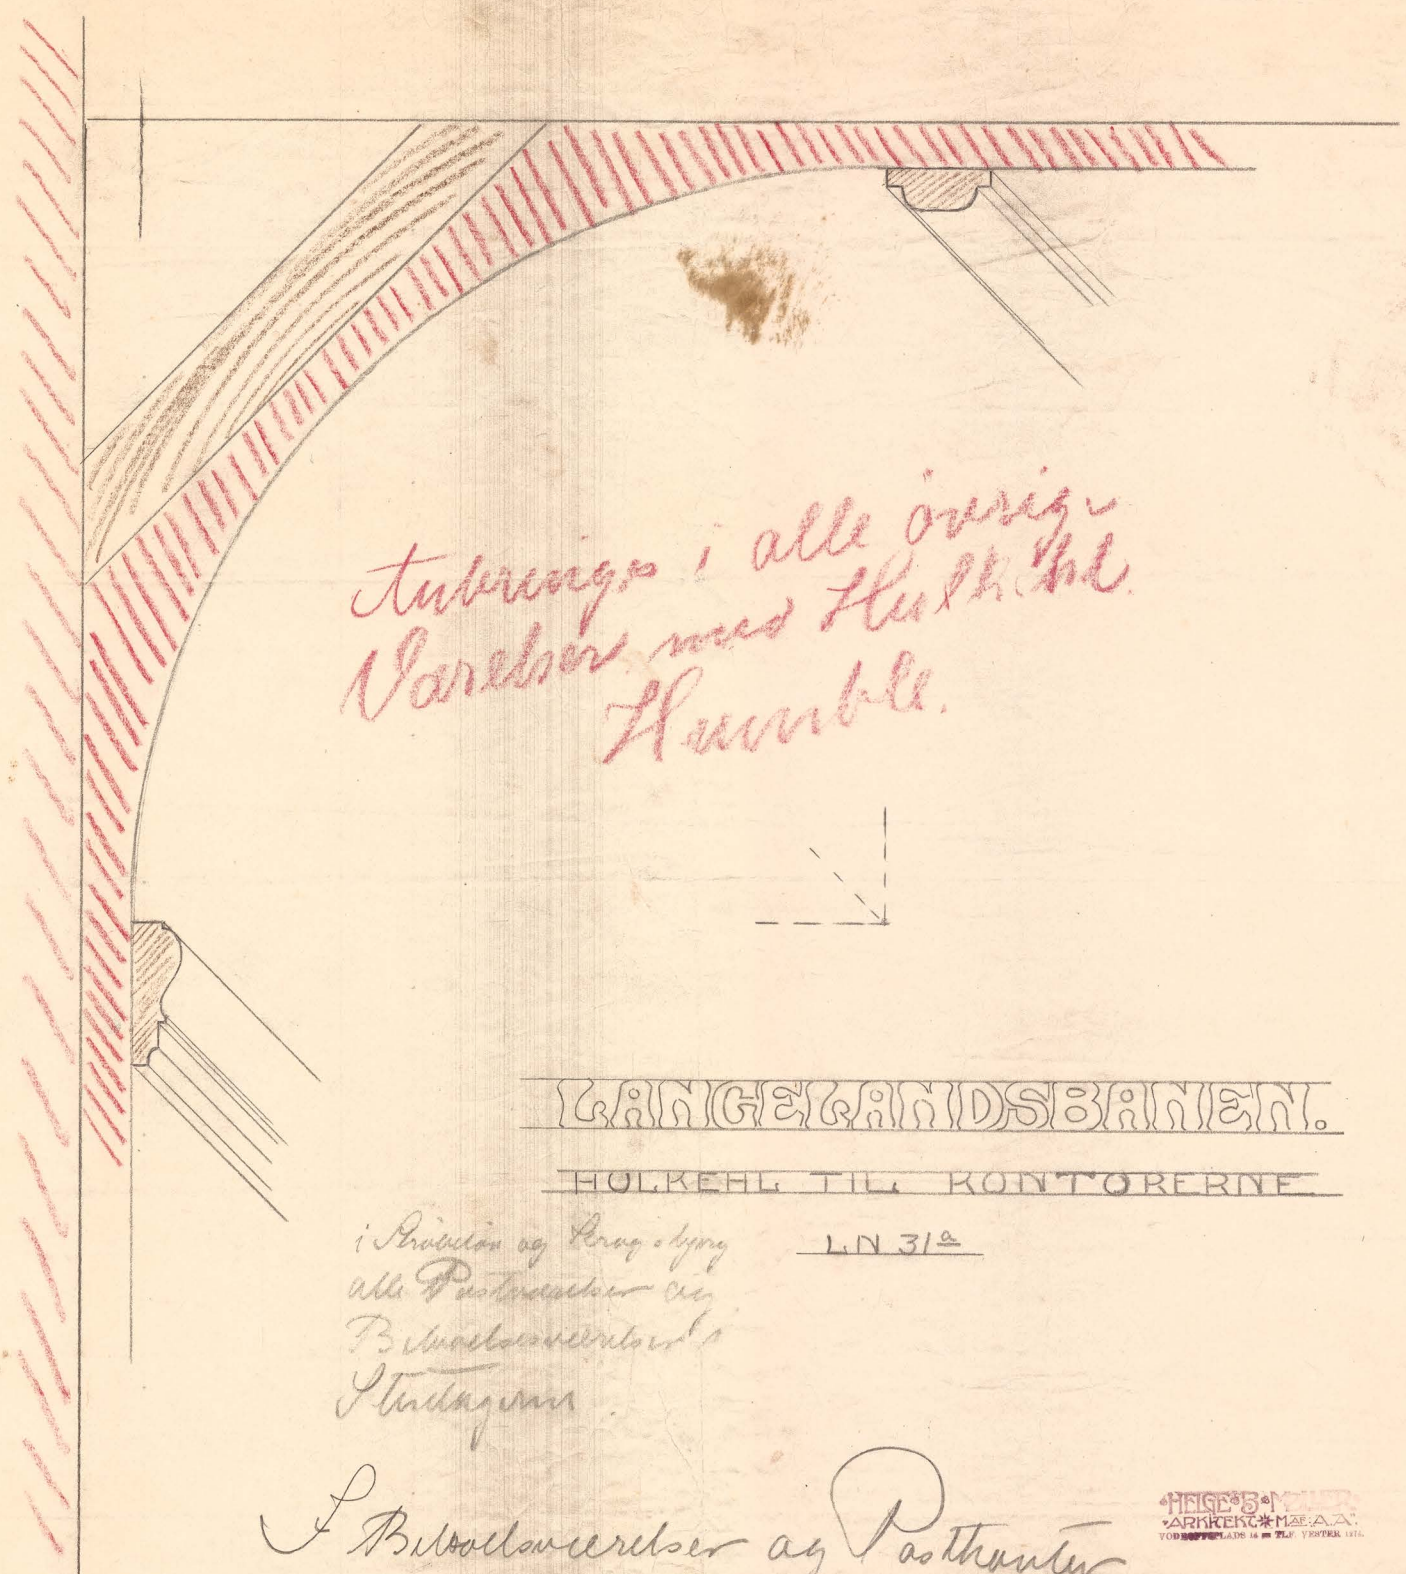 Anbringes i alle øvrige
Værelser med Hulkehl.
Humble.
LANGELANDSBANEN.
HULKEHL TIL KONTORERNE
LN 31a
i og
alle Postværelser og
Beboelsesværelser i
I Beboelsesværelser og Postkontor
HELGE B MØLLER
ARKITEKT M. A. A.
PLADS 14 TLF. VESTER